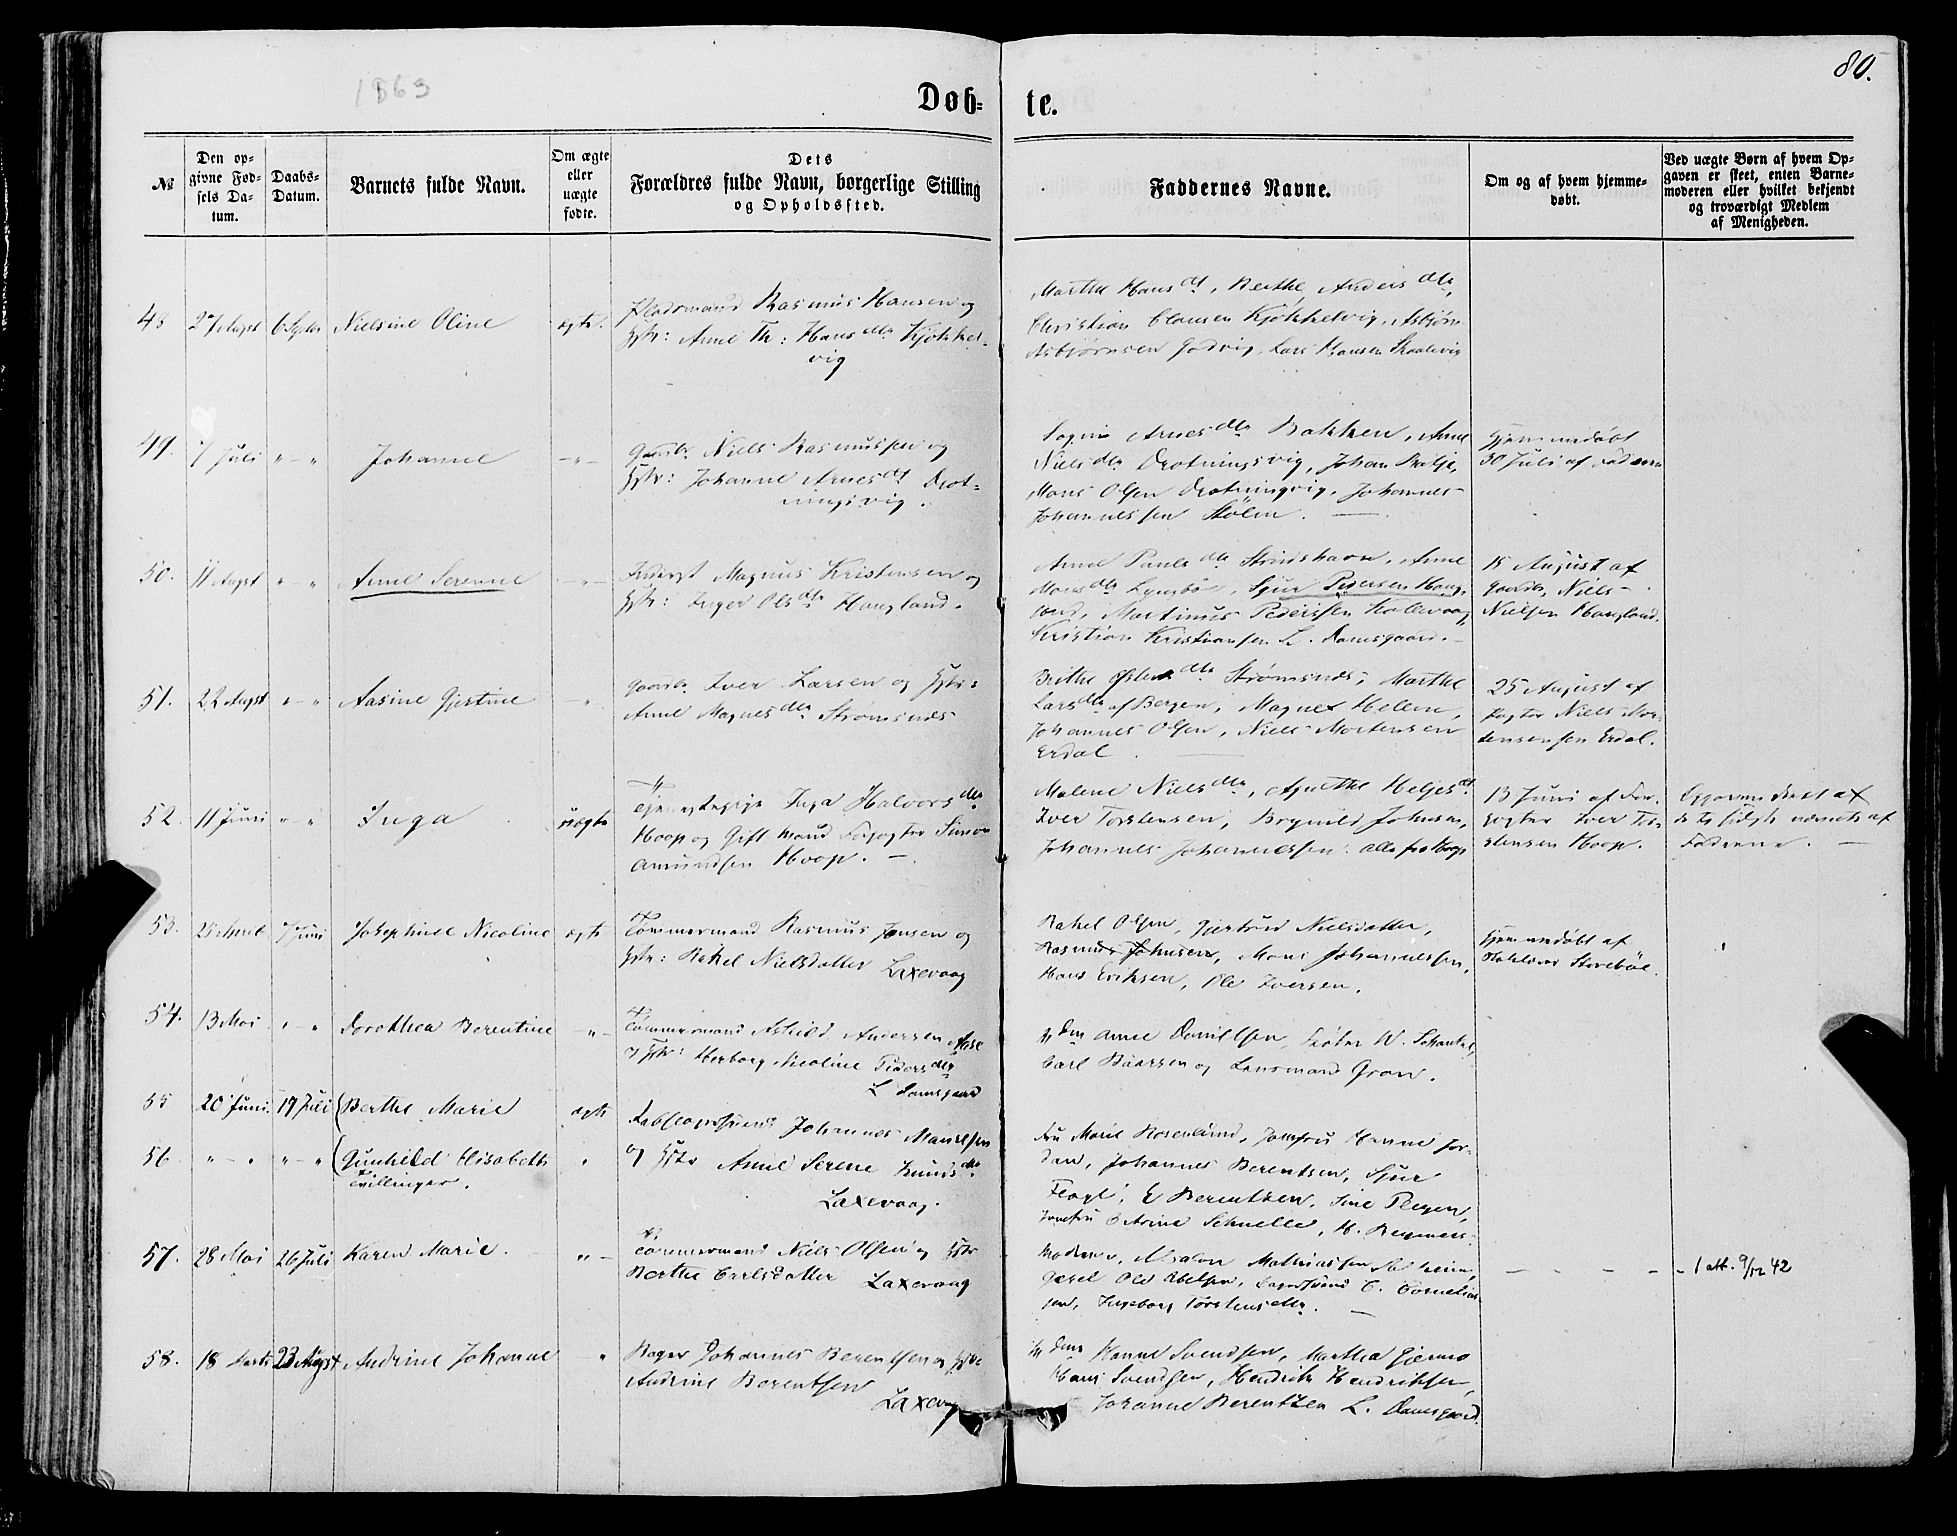 1863
80.
Døb- te.
№
Den op-
givne Fød-
sels Da-
tum.
Daabs-
Datum.
Barnets fulde Navn.
Om ægte
eller
uægte
fødte.
Dets
Forældres fulde Navn, borgerlige Stilling
og Opholdssted.
Faddernes Navne.
Om og af hvem hjemme-
døbt.
Ved uægte Børn af hvem Op-
gaven er skeet, enten Barne-
moderen eller hvilket bekjendt
og troværdigt Medlem
af Menigheden.
48 27 Augst 6 Septbr Nielsine Oline ægte.
Pladsmand Rasmus Hansen og
Hstr: Anne Th: Hansdtr Kjøkkel-
vig
Marthe Hansdt, Berthe Andersdtr,
Christian Clausen Kjøkkelvig, Asbjørn
Asbjørnsen Godvig, Lars Hansen Skaalevig
49. 7 Juli " - " Johanne - " -
Gaardbr. Niels Rasmussen og
Hstr: Johanne Arnesdt Drot-
ningsvig.
Arnesdtr Bakken, Anne
Nielsdtr Drotningsvig, Johan
Mons Olsen Drotningvig, Johannes
Johannessen Stölen. —
Hjemmedöbt
30 Juli af Faderen
50. 11 Augst " - " Anne Serenne - " -
Inderst Magnus Kristensen og
Hstr: Inger Olsdtr Haugland.
Anne Paulsdtr Strudshavn, Anne
Monsdtr Lyngbö, Sjur Pedersen Haug-
land, Martinus Pederssen Kolevaag
Kristian Kristiansen L. Damsgaard. -
15 August af
Gaardbr. Niels
Nielsen Haugland.
51. 22 Augst " - " Aasine Gjertine - " -
Gaardbr. Iver Larsen og Hstr:
Anne Magnesdtr Strømsnes
Brithe Olsdtr Strømsnes, Marthe
Larsdtr af Bergen, Magne Helene,
Johannes Olsen, Niels Mortensen
Erdal.
25 August af
Fogtor Niels Mor-
tensensen Erdal.
52. 11 Juni " - " Inga uægte
Tjenestepige Inga Halvorsdtr
Hoop og Gift mand Simon
Amundsen Hoop. -
Malene Nielsdtr, Agnethe Heljesdt
Iver Torstensen, Brynild Johnsen,
Johannes Johannessen alle fra Hoop
13 Juni af For-
sogtor Iver Tor-
stensen Hoop.
af
Faderne. —
53. 25 April 7 Juni Josephine Nicoline ægte
Tömmermand Rasmus Jonsen og
Hstr: Rakel Nielsdatter Laxevaag
Rakel Olsen, Gjertrud Nielsdatter,
Rasmus Johnsen, Mons Johannessen,
Hans Eriksen, Ole Iversen.
Hjemmedöbt af
Storeböe
54. 13 Mai " - " Dorothea Berentine - " -
Tömmermand Askild Andersen Aase
og Hstr: Herborg Nicoline Pedersdtr
L Damsgaard
Mden Anne Danielsen, W. Schanke,
Carl Baarsen og Lensmand Gran.
55 20 Juni 19 Juli Berthe Marie ægte
56 " - " " - " Gunhild Elisabeth "
Tvillinger.
Johannes Monssen
og Hstr Anne Serene Knudsdtr
Laxevaag.
Fru Marie Rosenlund, Jomfru Hanne Jor-
dan, Johannes Berentsen, Sjur
E Berentsen, Sine
Jomfru Schnelle, H.
57. 28 Mai 26 Juli Karen Marie. " -
Tömmermand Niels Olsen og Hstr
Berthe Carlsdatter Laxevaag
Moderen, Absalon Mathiassen
Ole Abelsen, C. Cornelius-
sen, Ingeborg Torstensdtr. —
- 1 att. 9/12 42
58. 18 Marts 23 Augst Andrine Johanne "
Johannes Berentsen og Hstr
Andrine Berentsen
Laxevaag
Mden Hanne Svendsen, Martha
Hans Svendsen, Hendrik Hendriksen,
Johanne Berentzen L. Damsgaard.